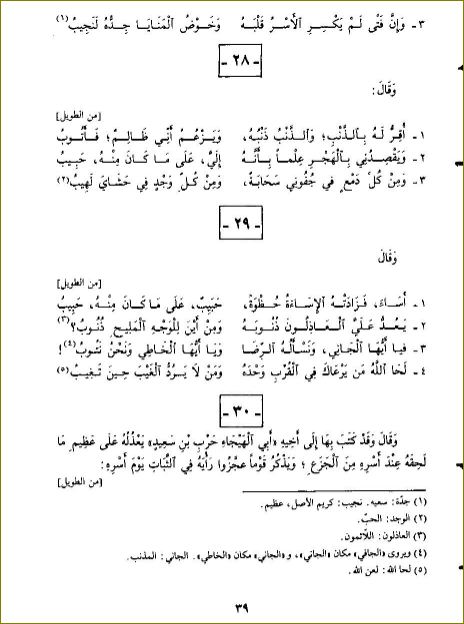 ٣ - وَإِنَّ فَتًى لَمْ يَكْسِرِ ٱلْأَسْرُ قَلْبَهُ وَخَوْضُ ٱلْمَنَايَا جِدُّهُ لَنَجِيبُ(١)
- ٢٨ -
وَقَالَ:
[من الطويل]
١ - أُقِرُّ لَهُ بِٱلذَّنْبِ؛ وَٱلذَّنْبُ ذَنْبُهُ، وَيَزْعُمُ أَنِّي ظَالِمٌ؛ فَأَتُوبُ
٢ - وَيَقْصِدُنِي بِٱلْهَجْرِ عِلْماً بِأَنَّهُ إِلَيَّ، عَلَى مَا كَانَ مِنْهُ، حَبِيبُ
٣ - وَمِنْ كُلِّ دَمْعٍ فِي جُفُونِي سَحَابَةٌ، وَمِنْ كُلِّ وَجْدٍ فِي حَشَايَ لَهِيبُ(٢)
- ٢٩ -
وَقَالَ
[من الطويل]
١ - أَسَاءَ، فَزَادَتْهُ ٱلْإِسَاءَةُ حُظْوَةً، حَبِيبٌ، عَلَى مَا كَانَ مِنْهُ، حَبِيبُ
٢ - يَعُدُّ عَلَيَّ ٱلْعَاذِلُونَ ذُنُوبَهُ وَمِنْ أَيْنَ لِلْوَجْهِ ٱلْمَلِيحِ ذُنُوبُ؟(٣)
٣ - فَيَا أَيُّهَا ٱلْجَانِي، وَنَسْأَلُهُ ٱلرِّضَا وَيَا أَيُّهَا ٱلْخَاطِي وَنَحْنُ نَتُوبُ(٤)!
٤ - لَحَا ٱللَّهُ مَنْ يَرْعَاكَ فِي ٱلْقُرْبِ وَحْدَهُ وَمَنْ لَا يَرُدُّ ٱلْغَيْبَ حِينَ تَغِيبُ(٥)
- ٣٠ -
وَقَالَ وَقَدْ كَتَبَ بِهَا إِلَى أَخِيهِ «أَبِي ٱلْهَيْجَاءِ حَرْبِ بْنِ سَعِيدٍ» يَعْذُلُهُ عَلَى عَظِيمِ مَا
لَحِقَهُ عِنْدَ أَسْرِهِ مِنَ ٱلْجَزَعِ؛ وَيَذْكُرُ قَوْماً عَجَّزُوا رَأْيَهُ فِي ٱلثَّبَاتِ يَوْمَ أَسْرِهِ:
[من الطويل]
(١) جدّة: سعيه. نجيب: كريم الأصل، عظيم.
(٢) الوجد: الحبّ.
(٣) العاذلون: اللّائمون.
(٤) ويروى «الجافي» مكان «الجاني»، و «الجاني» مكان «الخاطي». الجاني: المذنب.
(٥) لحا الله: لعن الله.
٣٩